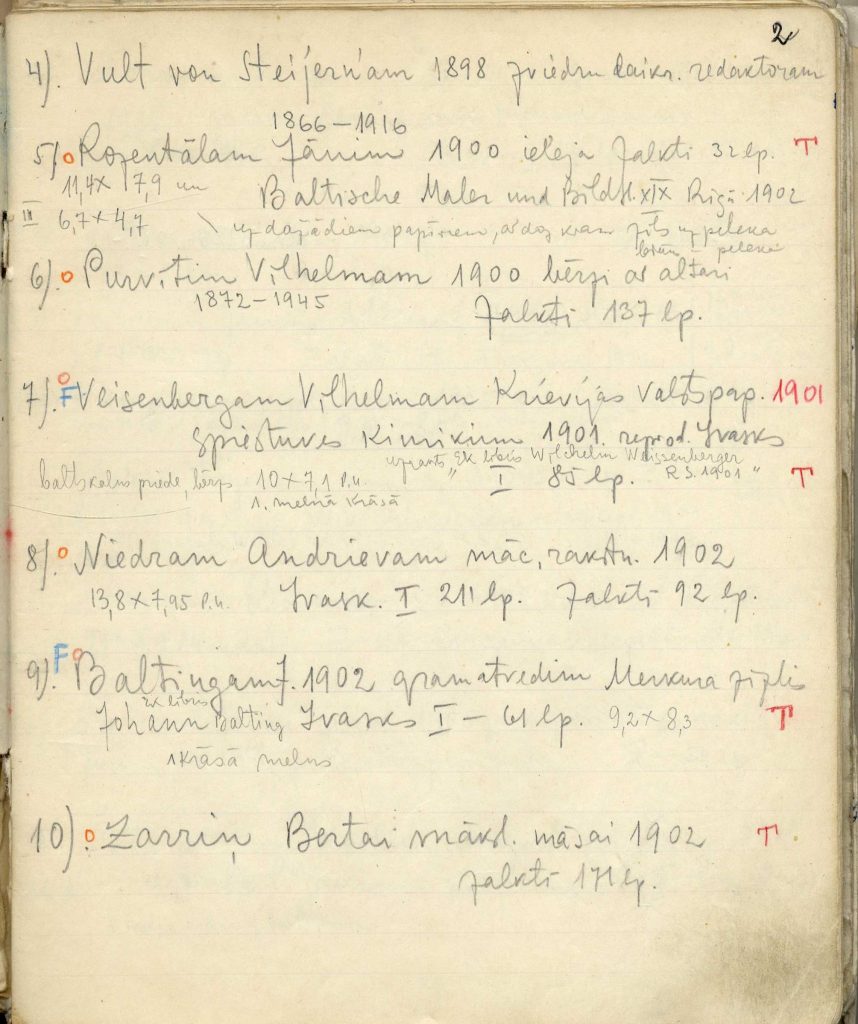 2
4). Vult von Steijern'am 1898 zviedru laikr. redaktoram
1866–1916
5). o Rozentālam Jānim 1900 ieleja Zalkti 32 lp. T
11,4×7,9 un Baltische Maler und Bildh. XIX Rigā 1902
III 6,7×4,7 uz dažādiem papīriem, ar zils uz peleka
brūn – peleka
6). o Purvītim Vilhelmam 1900 bērzi ar altari
1872–1945 Zalkti 137 lp.
7). o F Veisenbergam Vilhelmam Krievijas valstspap. 1901
spiestuves Ķīmiķim 1901. reprod. Ivasks
uzraksts „Ex libris Wilchelm Weissenberger
R.S. 1901"
baltskalns priede, bērzs 10×7,1 P.u. I 85 lp. T
1. melnā krāsā
8). o Niedram Andrievam māc, rakstn. 1902
13,8×7,95 P.u. Ivask. I 211 lp. Zalkti 92 lp.
9). F o Baltiņgam J. 1902 gramatvedim Merkura zizlis
Ex libris
Johann Balting Ivasks I – 61 lp. 9,2×8,3 T
1 krāsā melns
10). o Zarriņ Bertai māksl. māsai 1902 T
Zalkti 171 lp.